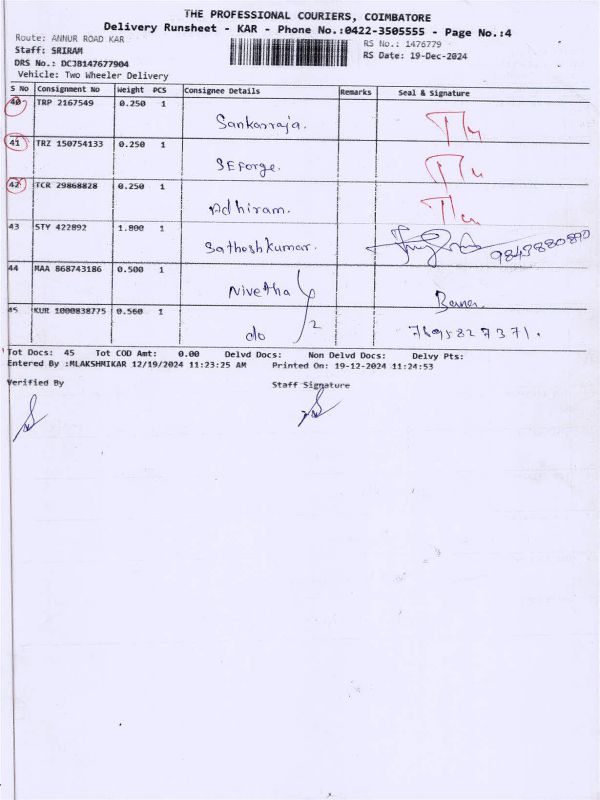 THE PROFESSIONAL COURIERS, COIMBATORE
Delivery Runsheet - KAR - Phone No.:0422-3505555 - Page No.:4
Route: ANNUR ROAD KAR
RS No.: 1476779
Staff: SRIRAM
RS Date: 19-Dec-2024
DRS No.: DCJB147677904
Vehicle: Two Wheeler Delivery
S No Consignment No Weight PCS Consignee Details Remarks Seal & Signature
40 TRP 2167549 0.250 1
Sankarraja.
41 TRZ 150754133 0.250 1
SEForge.
42 TCR 29868828 0.250 1
Adhiram.
43 STY 422892 1.800 1
Sathoshkumar. 9843880890
44 MAA 868743186 0.500 1
Nivetha
45 KUR 1000838775 0.560 1
do 2 7695827371.
Tot Docs: 45 Tot COD Amt: 0.00 Delvd Docs: Non Delvd Docs: Delvy Pts:
Entered By :MLAKSHMIKAR 12/19/2024 11:23:25 AM Printed On: 19-12-2024 11:24:53
Verified By Staff Signature